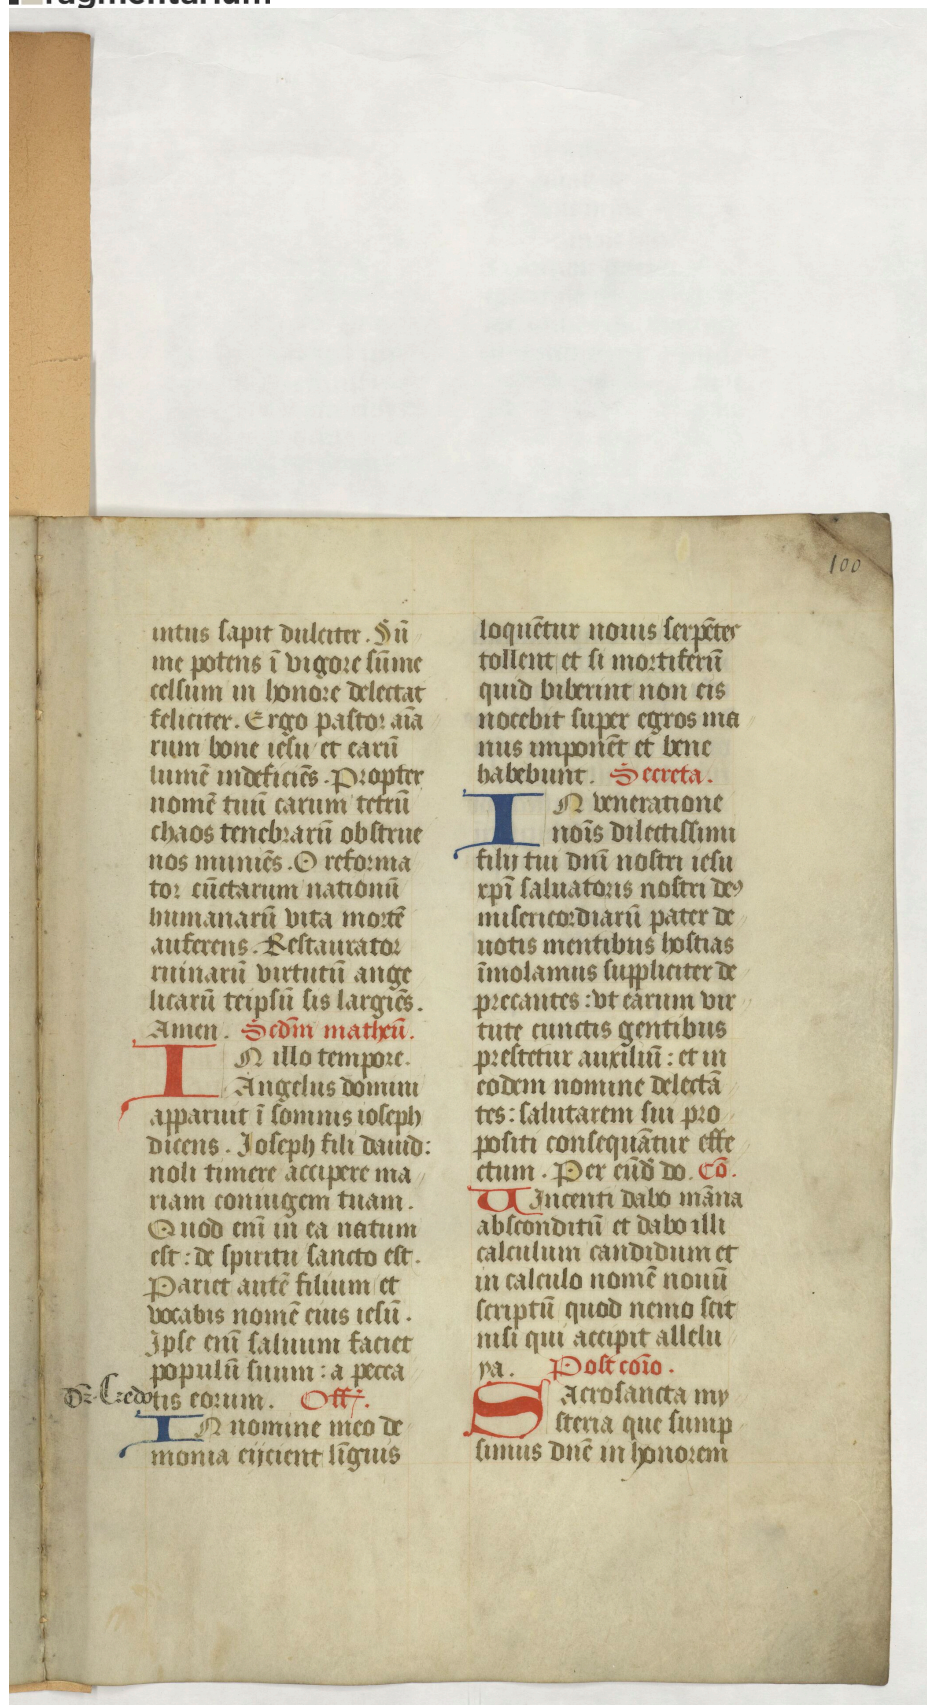 fragmentarium
100
intus sapit dulciter. Sū
me potens ī vigore sūme
celsum in honore delectat
feliciter. Ergo pastor aīa
rum bone iesu et earū
lumē indeficiēs. Propter
nomē tuū carum tetrū
chaos tenebrarū obstrue
nos muniēs. O reforma
tor cūctarum nationū
humanarū vita mortē
auferens. Restaurator
ruinarū virtutū ange
licarū teipsū sis largiēs.
Amen. Scdm̄ matheū.
IN illo tempore.
Angelus domini
apparuit ī somnis ioseph
dicens. Ioseph fili dauid:
noli timere accipere ma
riam coniugem tuam.
Quod enī in ea natum
est: de spiritu sancto est.
Pariet autē filium et
vocabis nomē eius iesū.
Ipse enī saluum faciet
populū suum: a pecca
Dr̄ Credo tis eorum. Off.
IN nomine meo de
monia eijcient līguis
loquētur nouis serpētes
tollent et si mortiferū
quid biberint non eis
nocebit super egros ma
nus imponēt et bene
habebunt. Secreta.
IN veneratione
nōis dilectissimi
filij tui dnī nostri iesu
xpī saluatoris nostri deꝰ
misericordiarū pater de
uotis mentibus hostias
īmolamus suppliciter de
precantes: vt earum vir
tute cunctis gentibus
prestetur auxiliū: et in
eodem nomine delectā
tes: salutarem sui pro
positi consequātur effe
ctum. Per eūd̄ do. Cō.
Uincenti dabo māna
absconditū et dabo illi
calculum candidum et
in calculo nomē nouū
scriptū quod nemo scit
nisi qui accipit allelu
ya. Post cōio.
Sacrosancta my
steria que sump
simus dnē in honorem